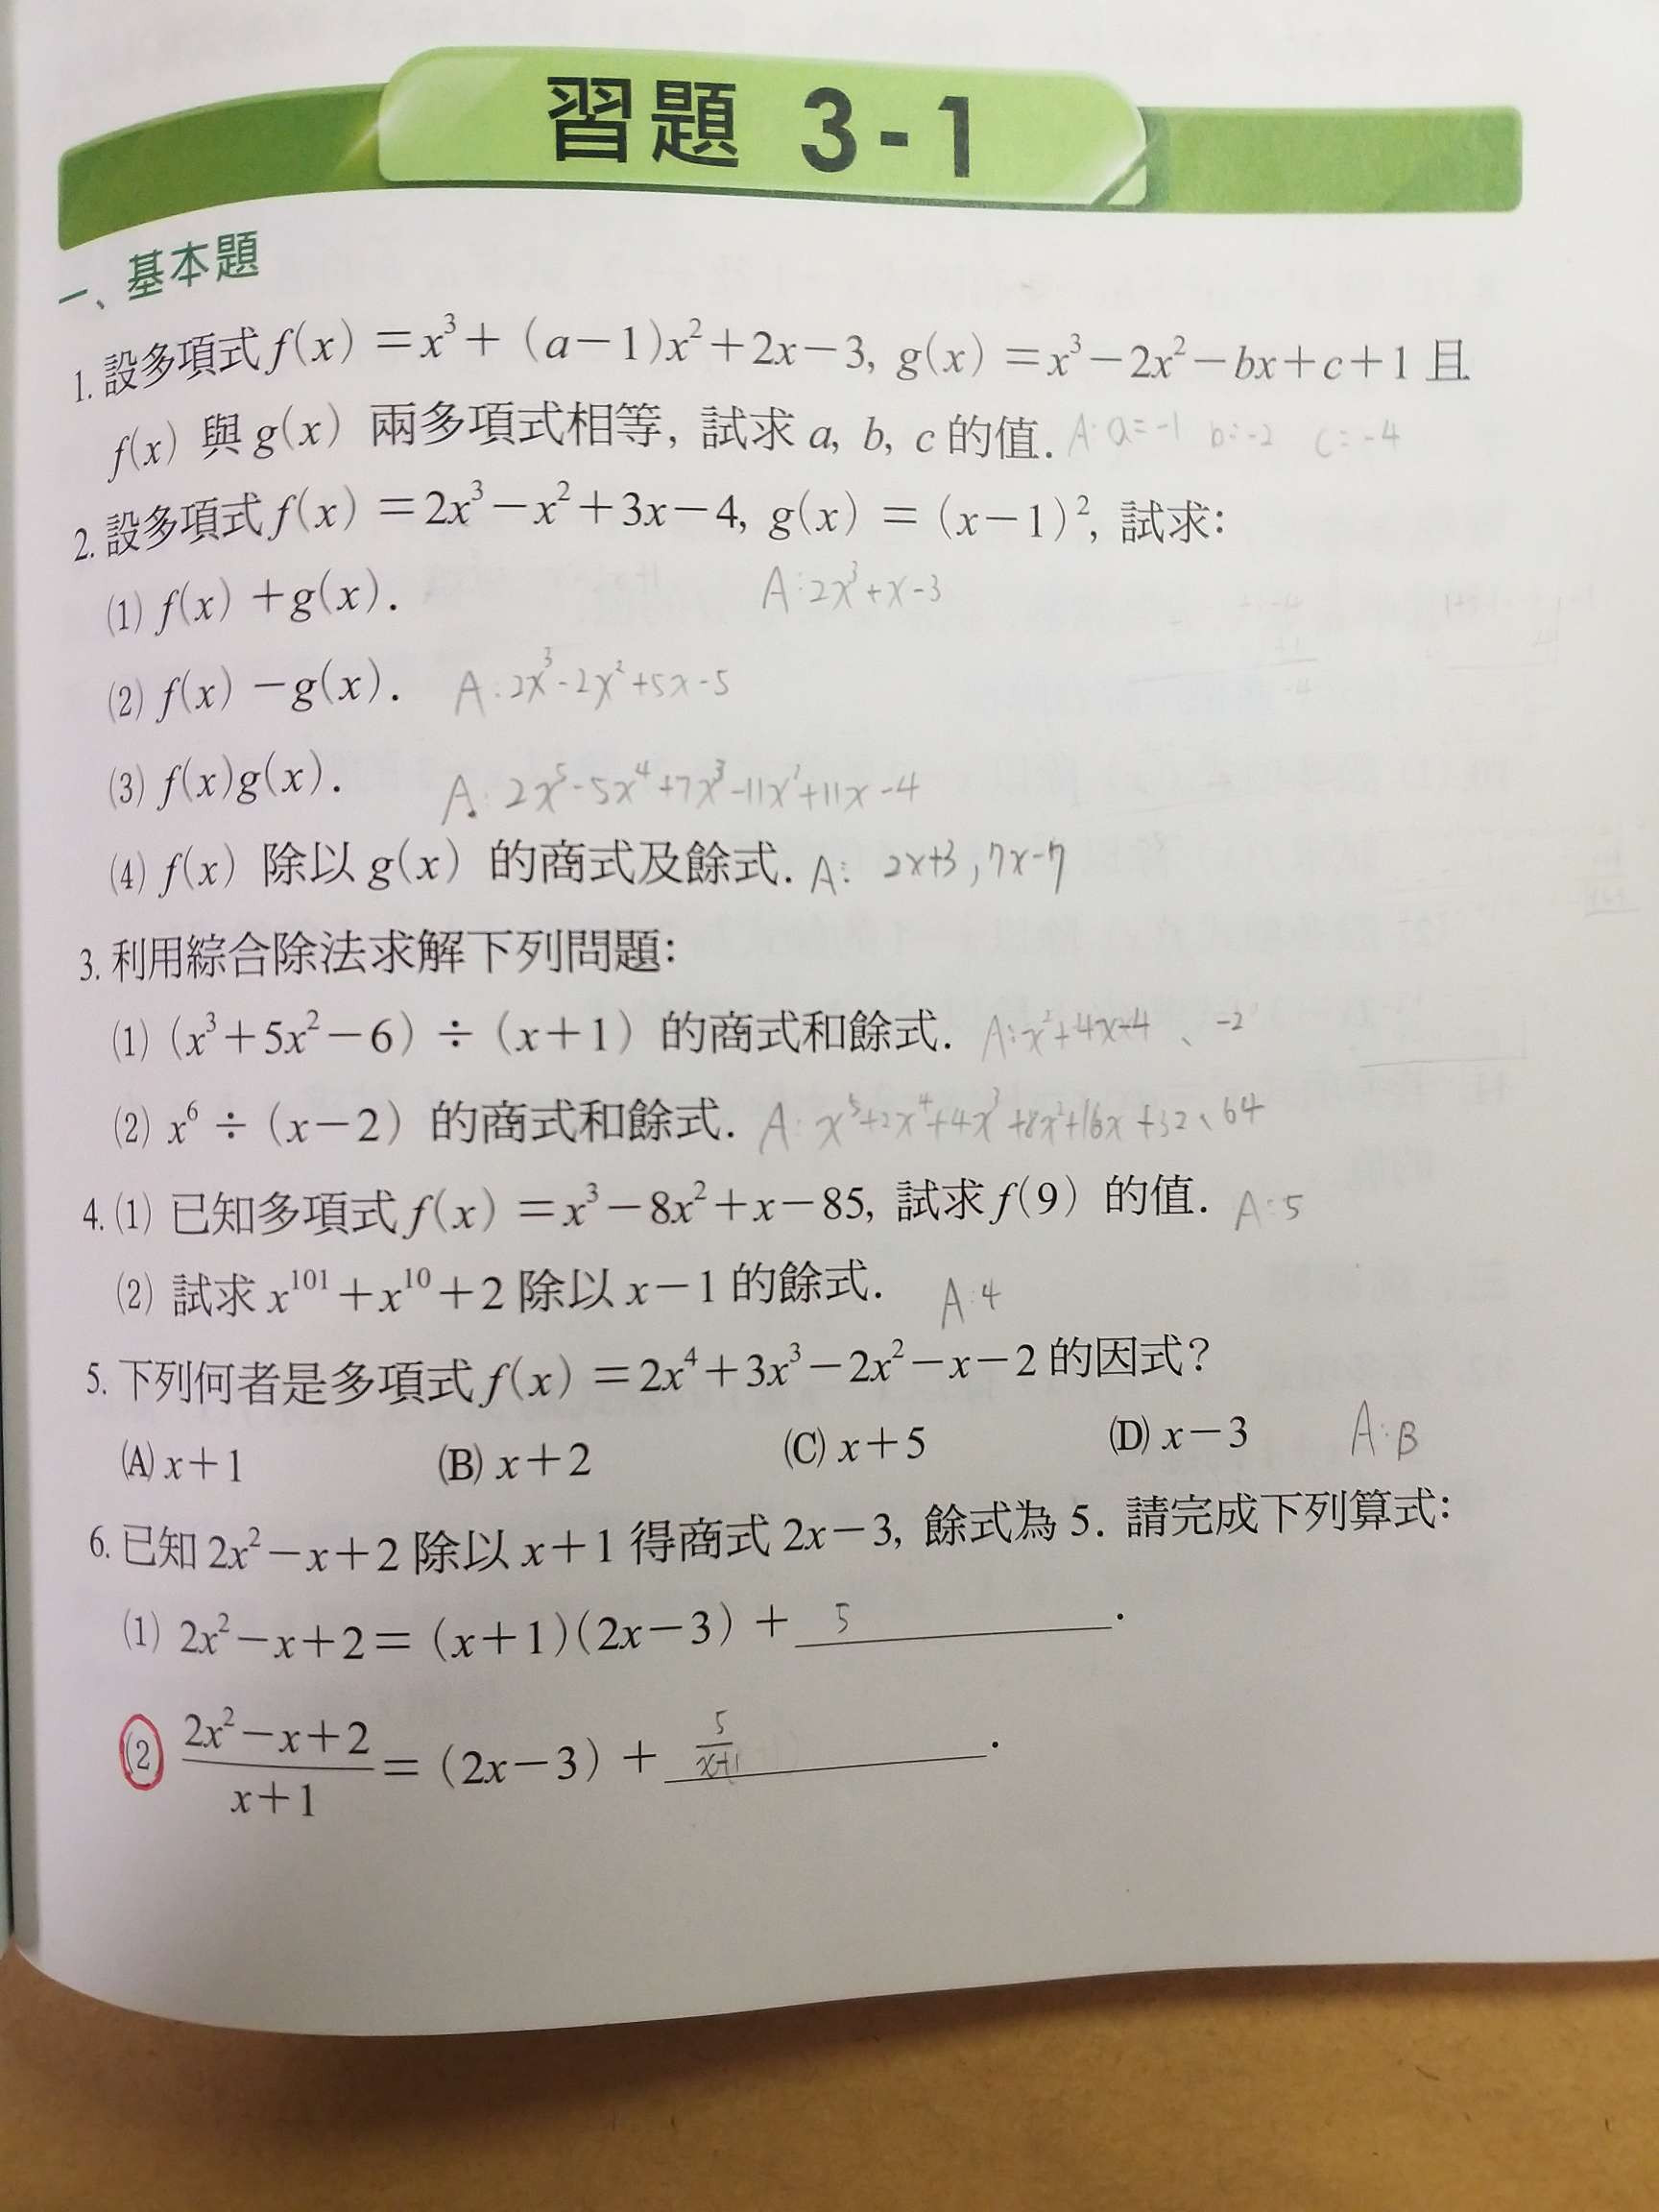 習題 3-1
一、基本題
1. 設多項式 f(x) =x³+ (a−1)x²+2x−3, g(x) =x³−2x²−bx+c+1 且
f(x) 與 g(x) 兩多項式相等, 試求 a, b, c 的值. A: a=-1 b=-2 c=-4
2. 設多項式 f(x) =2x³−x²+3x−4, g(x) = (x−1)², 試求:
(1) f(x) +g(x). A:2x³+x-3
(2) f(x) −g(x). A:2x³-2x²+5x-5
(3) f(x)g(x). A: 2x⁵-5x⁴+7x³-11x²+11x-4
(4) f(x) 除以 g(x) 的商式及餘式. A: 2x+3, 7x-7
3. 利用綜合除法求解下列問題:
(1) (x³+5x²−6) ÷ (x+1) 的商式和餘式. A:x²+4x-4、-2
(2) x⁶ ÷ (x−2) 的商式和餘式. A: x⁵+2x⁴+4x³+8x²+16x+32、64
4. (1) 已知多項式 f(x) =x³−8x²+x−85, 試求 f(9) 的值. A:5
(2) 試求 x¹⁰¹+x¹⁰+2 除以 x−1 的餘式. A:4
5. 下列何者是多項式 f(x) =2x⁴+3x³−2x²−x−2 的因式?
(A) x+1 (B) x+2 (C) x+5 (D) x−3 A:B
6. 已知 2x²−x+2 除以 x+1 得商式 2x−3, 餘式為 5. 請完成下列算式:
(1) 2x²−x+2= (x+1)(2x−3) + 5.
(2) (2x²−x+2)/(x+1) = (2x−3) + 5/(x+1).